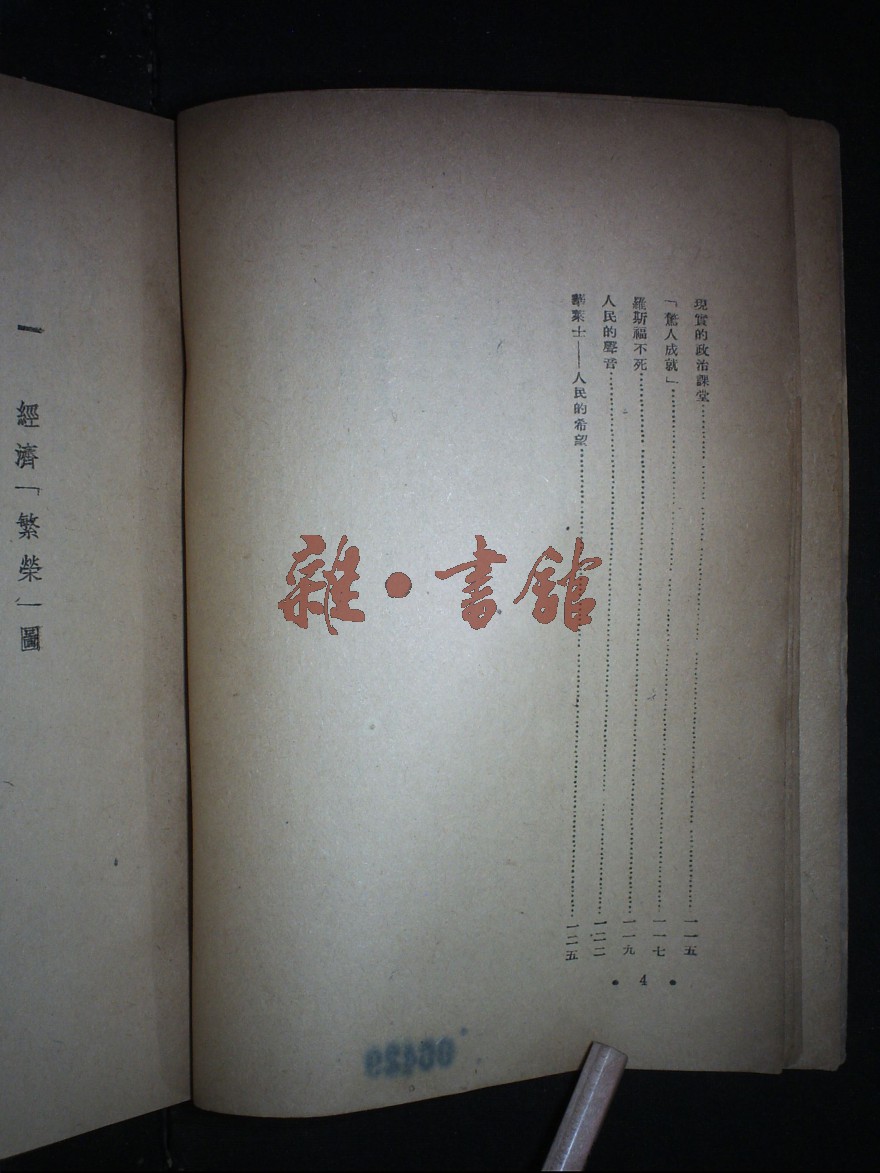 現實的政治課堂……一一五
「驚人成就」……一一七
羅斯福不死……一一九
人民的聲音……一二二
華萊士——人民的希望……一二五
• 4 •
一 經濟「繁榮」圖
雜·書館
06429